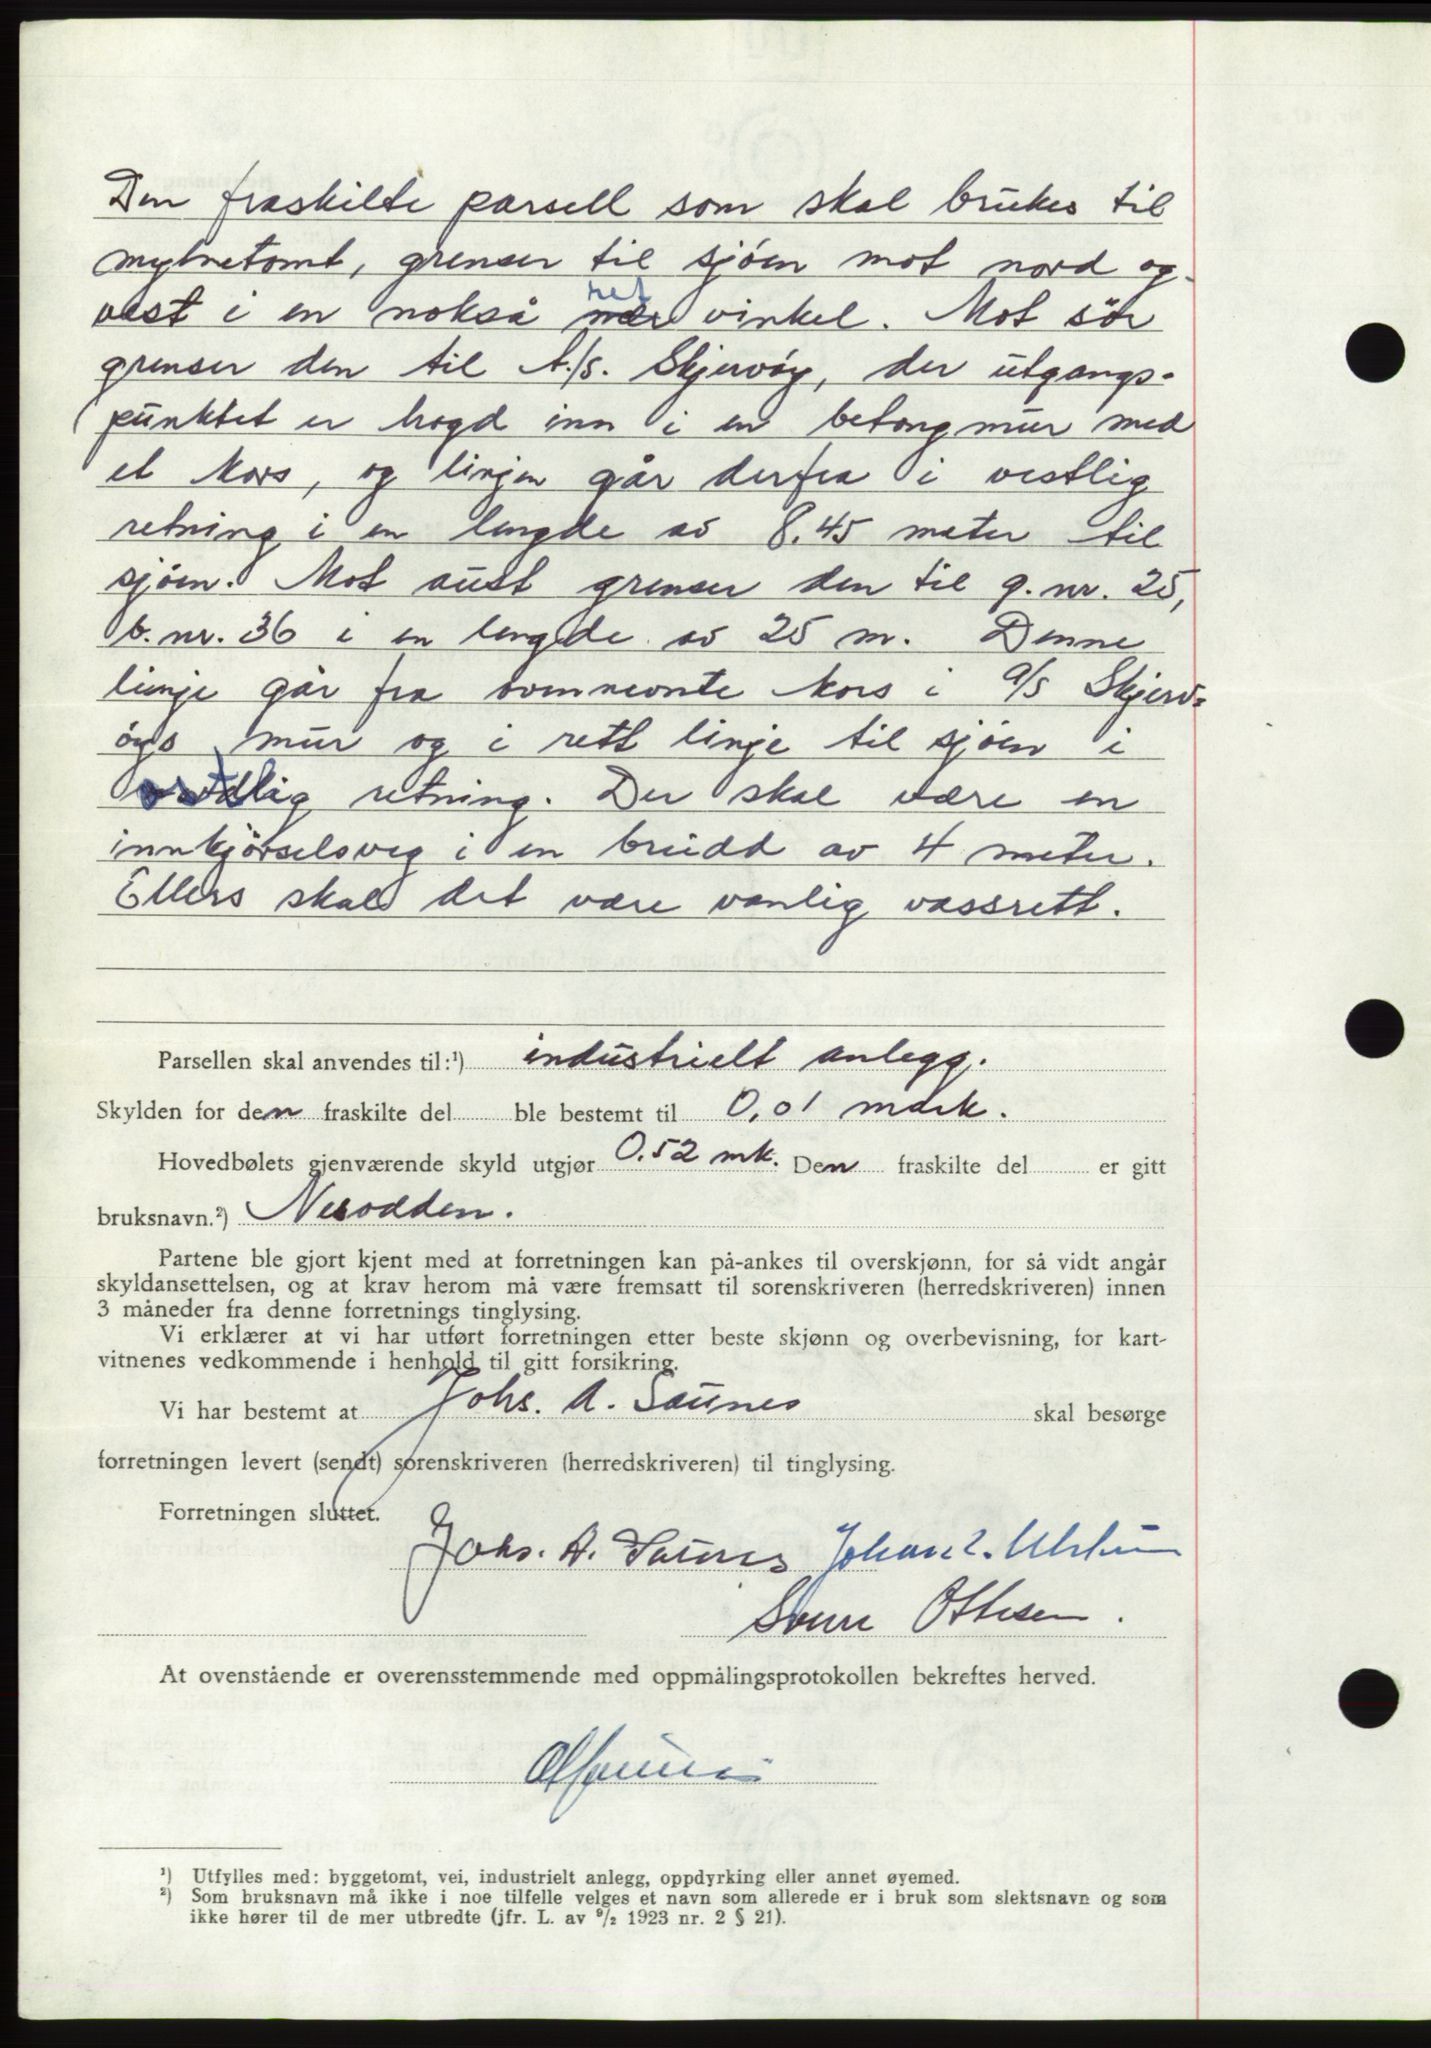 Den fraskilte parsell som skal brukes til
mylnetomt, grenser til sjöen mot nord og
vest i en nokså ret vinkel. Mot sör
grenser den til A./S. Skjervöy, der utgangs-
punktet er hogd inn i en betongmur med
et kors, og linjen går derfra i vestlig
retning i en lengde av 8.45 meter til
sjöen. Mot aust grenser den til g.nr. 25,
b.nr. 36 i en lengde av 25 m. Denne
linje går fra ovennevnte kors i a/s Skjerv=
öys mur og i rett linje til sjöen i
retning. Der skal være en
innkjörselsveg i en bridd av 4 meter.
Ellers skal det være vanlig vassrett.
Parsellen skal anvendes til:¹) industrielt anlegg.
Skylden for den fraskilte del ble bestemt til 0,01 mark.
Hovedbølets gjenværende skyld utgjør 0.52 mk. Den fraskilte del er gitt
bruksnavn.²) Nesodden.
Partene ble gjort kjent med at forretningen kan på-ankes til overskjønn, for så vidt angår
skyldansettelsen, og at krav herom må være fremsatt til sorenskriveren (herredskriveren) innen
3 måneder fra denne forretnings tinglysing.
Vi erklærer at vi har utført forretningen etter beste skjønn og overbevisning, for kart-
vitnenes vedkommende i henhold til gitt forsikring.
Vi har bestemt at Johs. A. Saunes skal besørge
forretningen levert (sendt) sorenskriveren (herredskriveren) til tinglysing.
Forretningen sluttet.
Johs. A. Saunes Johan
Sverre Ottesen.
At ovenstående er overensstemmende med oppmålingsprotokollen bekreftes herved.
¹) Utfylles med: byggetomt, vei, industrielt anlegg, oppdyrking eller annet øyemed.
²) Som bruksnavn må ikke i noe tilfelle velges et navn som allerede er i bruk som slektsnavn og som
ikke hører til de mer utbredte (jfr. L. av ⁹/₂ 1923 nr. 2 § 21).